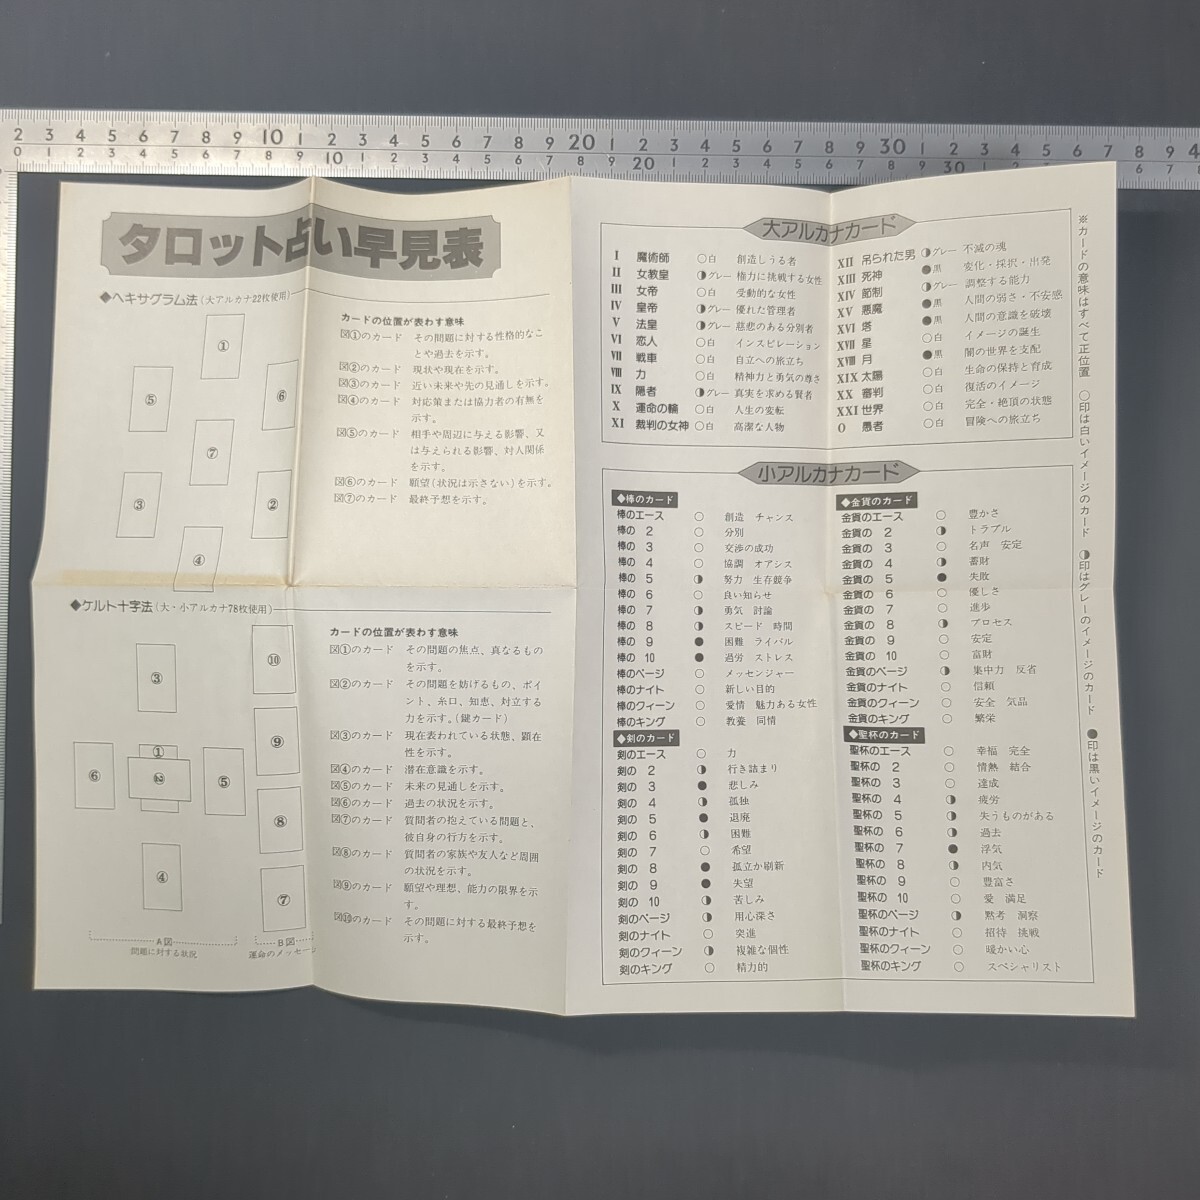 2 3 4 5 6 7 8 9 10 1 2 3 4 5 6 7 8 9 20 1 2 3 4 5 6 7 8 9 30 1 2 3 4 5 6 7 8 9 4
0 1 2 3 4 5 6 7 8 9 10 1 2 3 4 5 6 7 8 9 20 1 2 3 4 5 6 7 8 9 30 1 2 3 4 5 6 7 8
タロット占い早見表
◆ヘキサグラム法(大アルカナ22枚使用)
①
⑤
⑥
⑦
③
②
④
カードの位置が表わす意味
図①のカード その問題に対する性格的なこ
とや過去を示す。
図②のカード 現状や現在を示す。
図③のカード 近い未来や先の見通しを示す。
図④のカード 対応策または協力者の有無を
示す。
図⑤のカード 相手や周辺に与える影響、又
は与えられる影響、対人関係
を示す。
図⑥のカード 願望(状況は示さない)を示す。
図⑦のカード 最終予想を示す。
◆ケルト十字法(大・小アルカナ78枚使用)
③
⑩
①
②
⑥
⑤
⑨
⑧
④
⑦
A図
問題に対する状況
B図
運命のメッセージ
カードの位置が表わす意味
図①のカード その問題の焦点、真なるもの
を示す。
図②のカード その問題を妨げるもの、ポイ
ント、糸口、知恵、対立する
力を示す。(鍵カード)
図③のカード 現在表われている状態、顕在
性を示す。
図④のカード 潜在意識を示す。
図⑤のカード 未来の見通しを示す。
図⑥のカード 過去の状況を示す。
図⑦のカード 質問者の抱えている問題と、
彼自身の行方を示す。
図⑧のカード 質問者の家族や友人など周囲
の状況を示す。
図⑨のカード 願望や理想、能力の限界を示
す。
図⑩のカード その問題に対する最終予想を
示す。
大アルカナカード
I 魔術師 ○白 創造しうる者
II 女教皇 ◑グレー 権力に挑戦する女性
III 女帝 ○白 受動的な女性
IV 皇帝 ◑グレー 優れた管理者
V 法皇 ◑グレー 慈悲のある分別者
VI 恋人 ○白 インスピレーション
VII 戦車 ○白 自立への旅立ち
VIII 力 ○白 精神力と勇気の尊さ
IX 隠者 ◑グレー 真実を求める賢者
X 運命の輪 ○白 人生の変転
XI 裁判の女神 ○白 高潔な人物
XII 吊られた男 ◑グレー 不滅の魂
XIII 死神 ●黒 変化・採択・出発
XIV 節制 ◑グレー 調整する能力
XV 悪魔 ●黒 人間の弱さ・不安感
XVI 塔 ●黒 人間の意識を破壊
XVII 星 ○白 イメージの誕生
XVIII 月 ●黒 闇の世界を支配
XIX 太陽 ○白 生命の保持と育成
XX 審判 ○白 復活のイメージ
XXI 世界 ○白 完全・絶頂の状態
O 愚者 ○白 冒険への旅立ち
小アルカナカード
◆棒のカード
棒のエース ○ 創造 チャンス
棒の 2 ○ 分別
棒の 3 ○ 交渉の成功
棒の 4 ○ 協調 オアシス
棒の 5 ◑ 努力 生存競争
棒の 6 ○ 良い知らせ
棒の 7 ◑ 勇気 討論
棒の 8 ◑ スピード 時間
棒の 9 ● 困難 ライバル
棒の 10 ● 過労 ストレス
棒のページ ○ メッセンジャー
棒のナイト ○ 新しい目的
棒のクィーン ○ 愛情 魅力ある女性
棒のキング ○ 教養 同情
◆剣のカード
剣のエース ○ 力
剣の 2 ◑ 行き詰まり
剣の 3 ● 悲しみ
剣の 4 ◑ 孤独
剣の 5 ● 退廃
剣の 6 ◑ 困難
剣の 7 ○ 希望
剣の 8 ● 孤立か刷新
剣の 9 ● 失望
剣の 10 ◑ 苦しみ
剣のページ ◑ 用心深さ
剣のナイト ○ 突進
剣のクィーン ◑ 複雑な個性
剣のキング ○ 精力的
◆金貨のカード
金貨のエース ○ 豊かさ
金貨の 2 ◑ トラブル
金貨の 3 ○ 名声 安定
金貨の 4 ◑ 蓄財
金貨の 5 ● 失敗
金貨の 6 ○ 優しさ
金貨の 7 ○ 進歩
金貨の 8 ◑ プロセス
金貨の 9 ○ 安定
金貨の 10 ○ 富財
金貨のページ ◑ 集中力 反省
金貨のナイト ○ 信頼
金貨のクィーン ○ 安全 気品
金貨のキング ○ 繁栄
◆聖杯のカード
聖杯のエース ○ 幸福 完全
聖杯の 2 ○ 情熱 結合
聖杯の 3 ○ 達成
聖杯の 4 ◑ 疲労
聖杯の 5 ◑ 失うものがある
聖杯の 6 ◑ 過去
聖杯の 7 ● 浮気
聖杯の 8 ◑ 内気
聖杯の 9 ○ 豊富さ
聖杯の 10 ○ 愛 満足
聖杯のページ ◑ 黙考 洞察
聖杯のナイト ○ 招待 挑戦
聖杯のクィーン ○ 暖かい心
聖杯のキング ○ スペシャリスト
※カードの意味はすべて正位置 ○印は白いイメージのカード ◑印はグレーのイメージのカード ●印は黒いイメージのカード